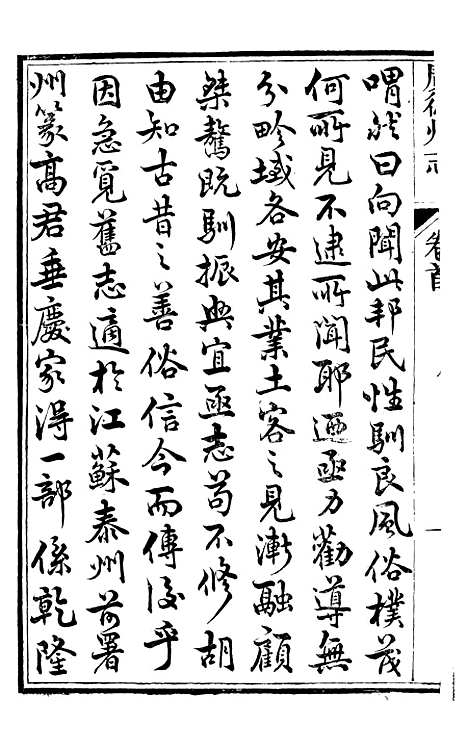 喟然曰向聞此邦民性馴良風俗樸茂
何所見不逮所聞耶迺亟力勸導無
分畛域各安其業土客之見漸融顧
桀驁既馴振興宜亟志苟不修胡
由知古昔之善俗信今而傳後乎
因急覓舊志適於江蘇泰州前署
州篆高君垂慶家得一部係乾隆
州志
卷首
一